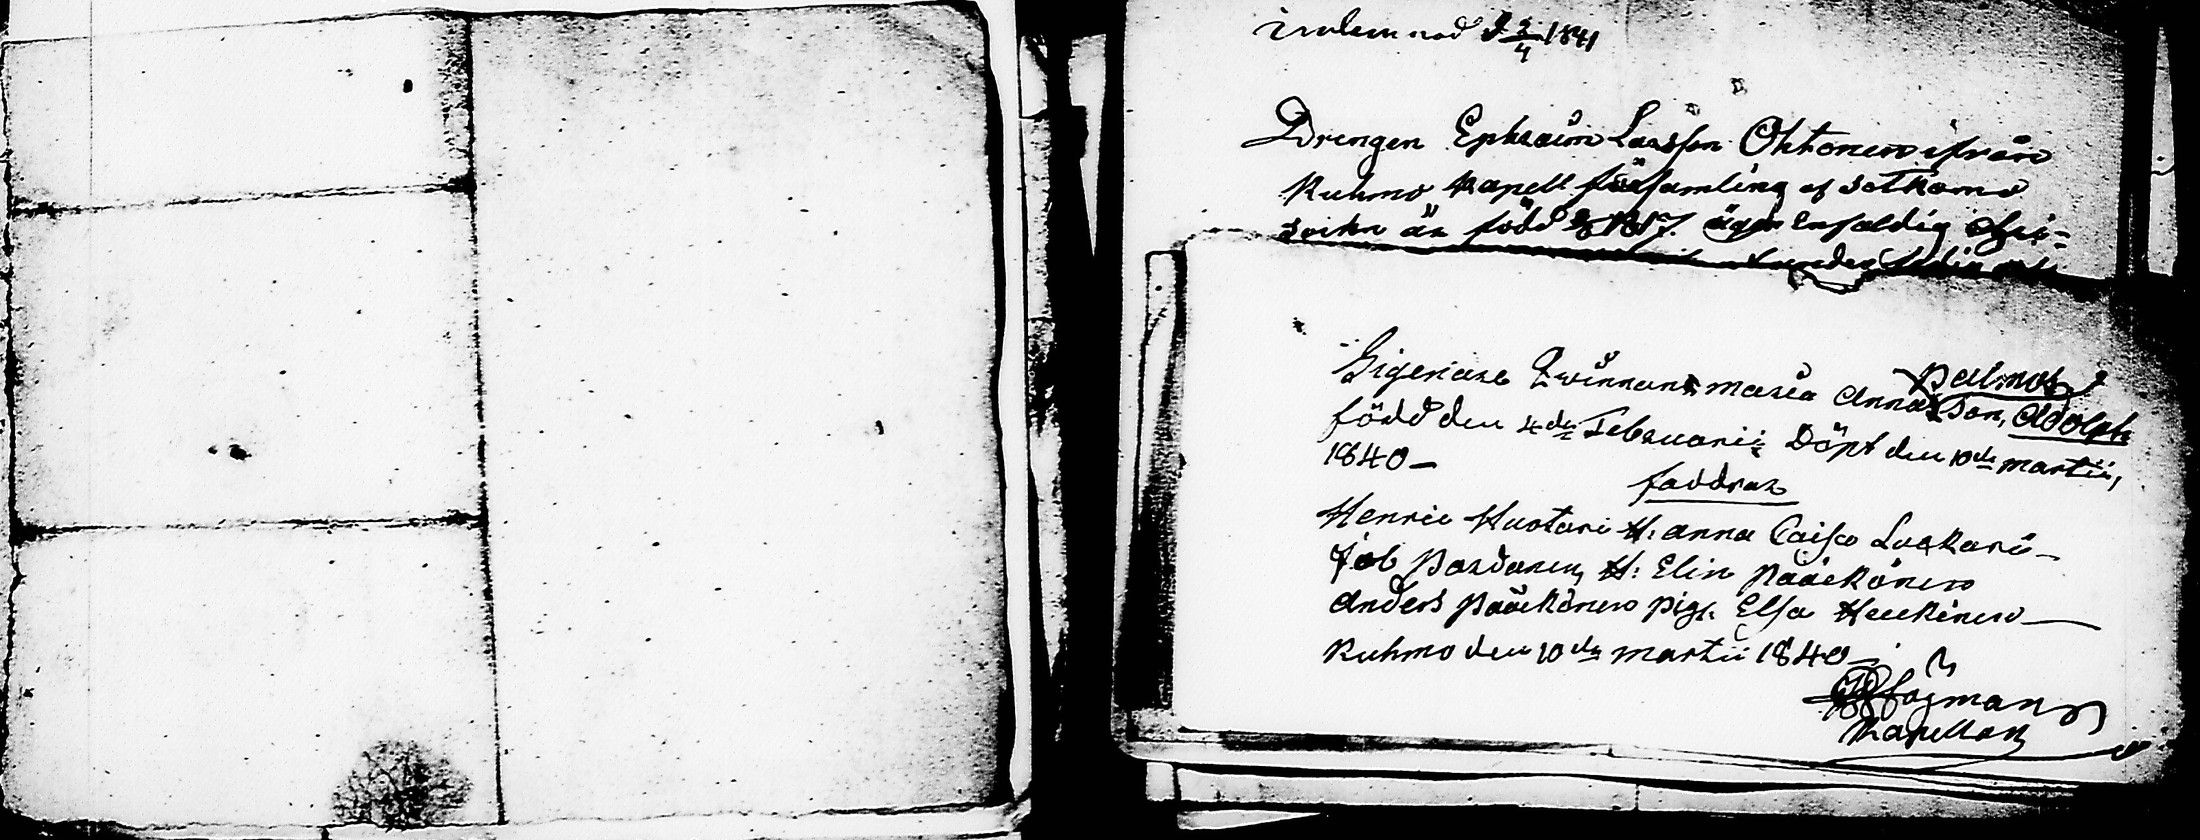 Inlemnad d 3/4 1841
Drengen Ephraim Larsson Ohtonen ifrån
Kuhmo Kapell församling af Sotkamo
Sockn är född 1817. äger Enfaldig Chri=
Sigenare Qwinnans Maria Anna Palmos
Son, Adolph
född den 4de Februarii Döpt den 10de Martii,
1840 –
faddrar
Henric Huotari H: Anna Caisa Luckari –
Job Pardanen, H: Elin Pääckönen
Anders Pääckönen Pig. Elsa Heickinen
Kuhmo den 10de Martii 1840 –
Högman
Kapellan